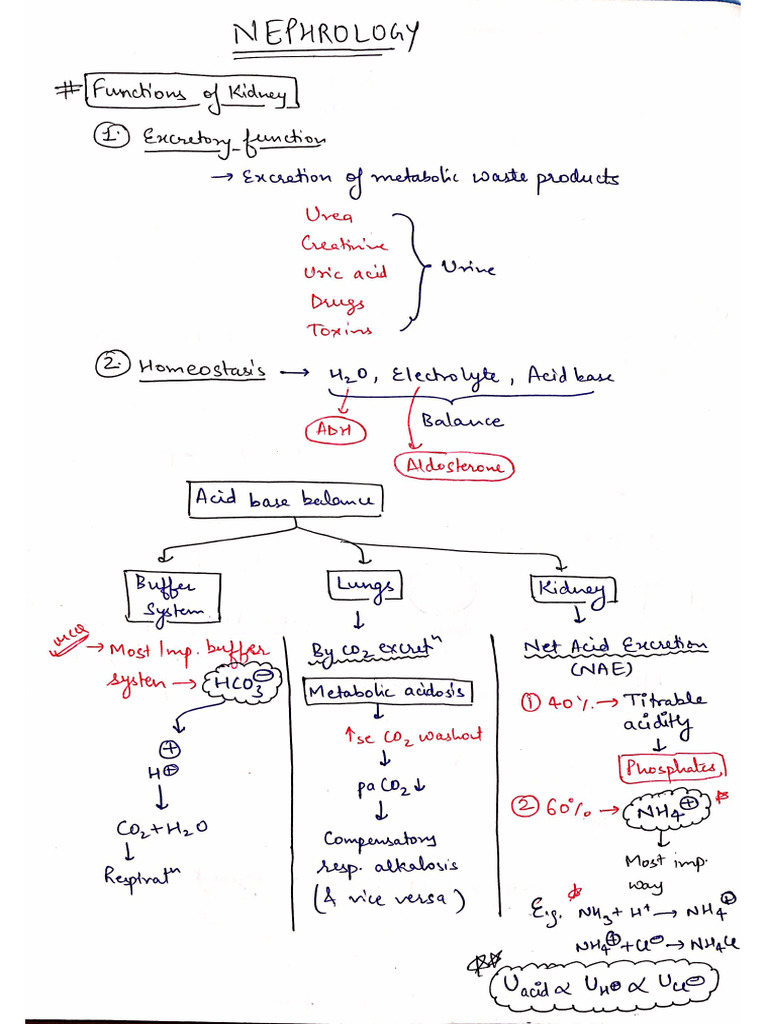 NEPHROLOGY
# Functions of Kidney
1. Excretory function
→ Excretion of metabolic waste products
Urea
Creatinine
Uric acid
Drugs
Toxins
Urine
2. Homeostasis → H2O, Electrolyte, Acid base
Balance
ADH
Aldosterone
Acid base balance
Buffer
System
MCQ → Most Imp. buffer
system → HCO3⊖
⊕
H⊕
↓
CO2+H2O
↓
Respiratⁿ
Lungs
↓
By CO2 excretⁿ
Metabolic acidosis
↓
↑se CO2 washout
↓
paCO2↓
↓
Compensatory
resp. alkalosis
(& vice versa)
Kidney
↓
Net Acid Excretion
(NAE)
① 40% → Titrable
acidity
↓
Phosphates
② 60% → NH4⊕
↓
Most imp.
way
E.g. NH3 + H+ → NH4⊕
NH4⊕ + Cl⊖ → NH4Cl
Uacid ∝ UH⊕ ∝ UCl⊖